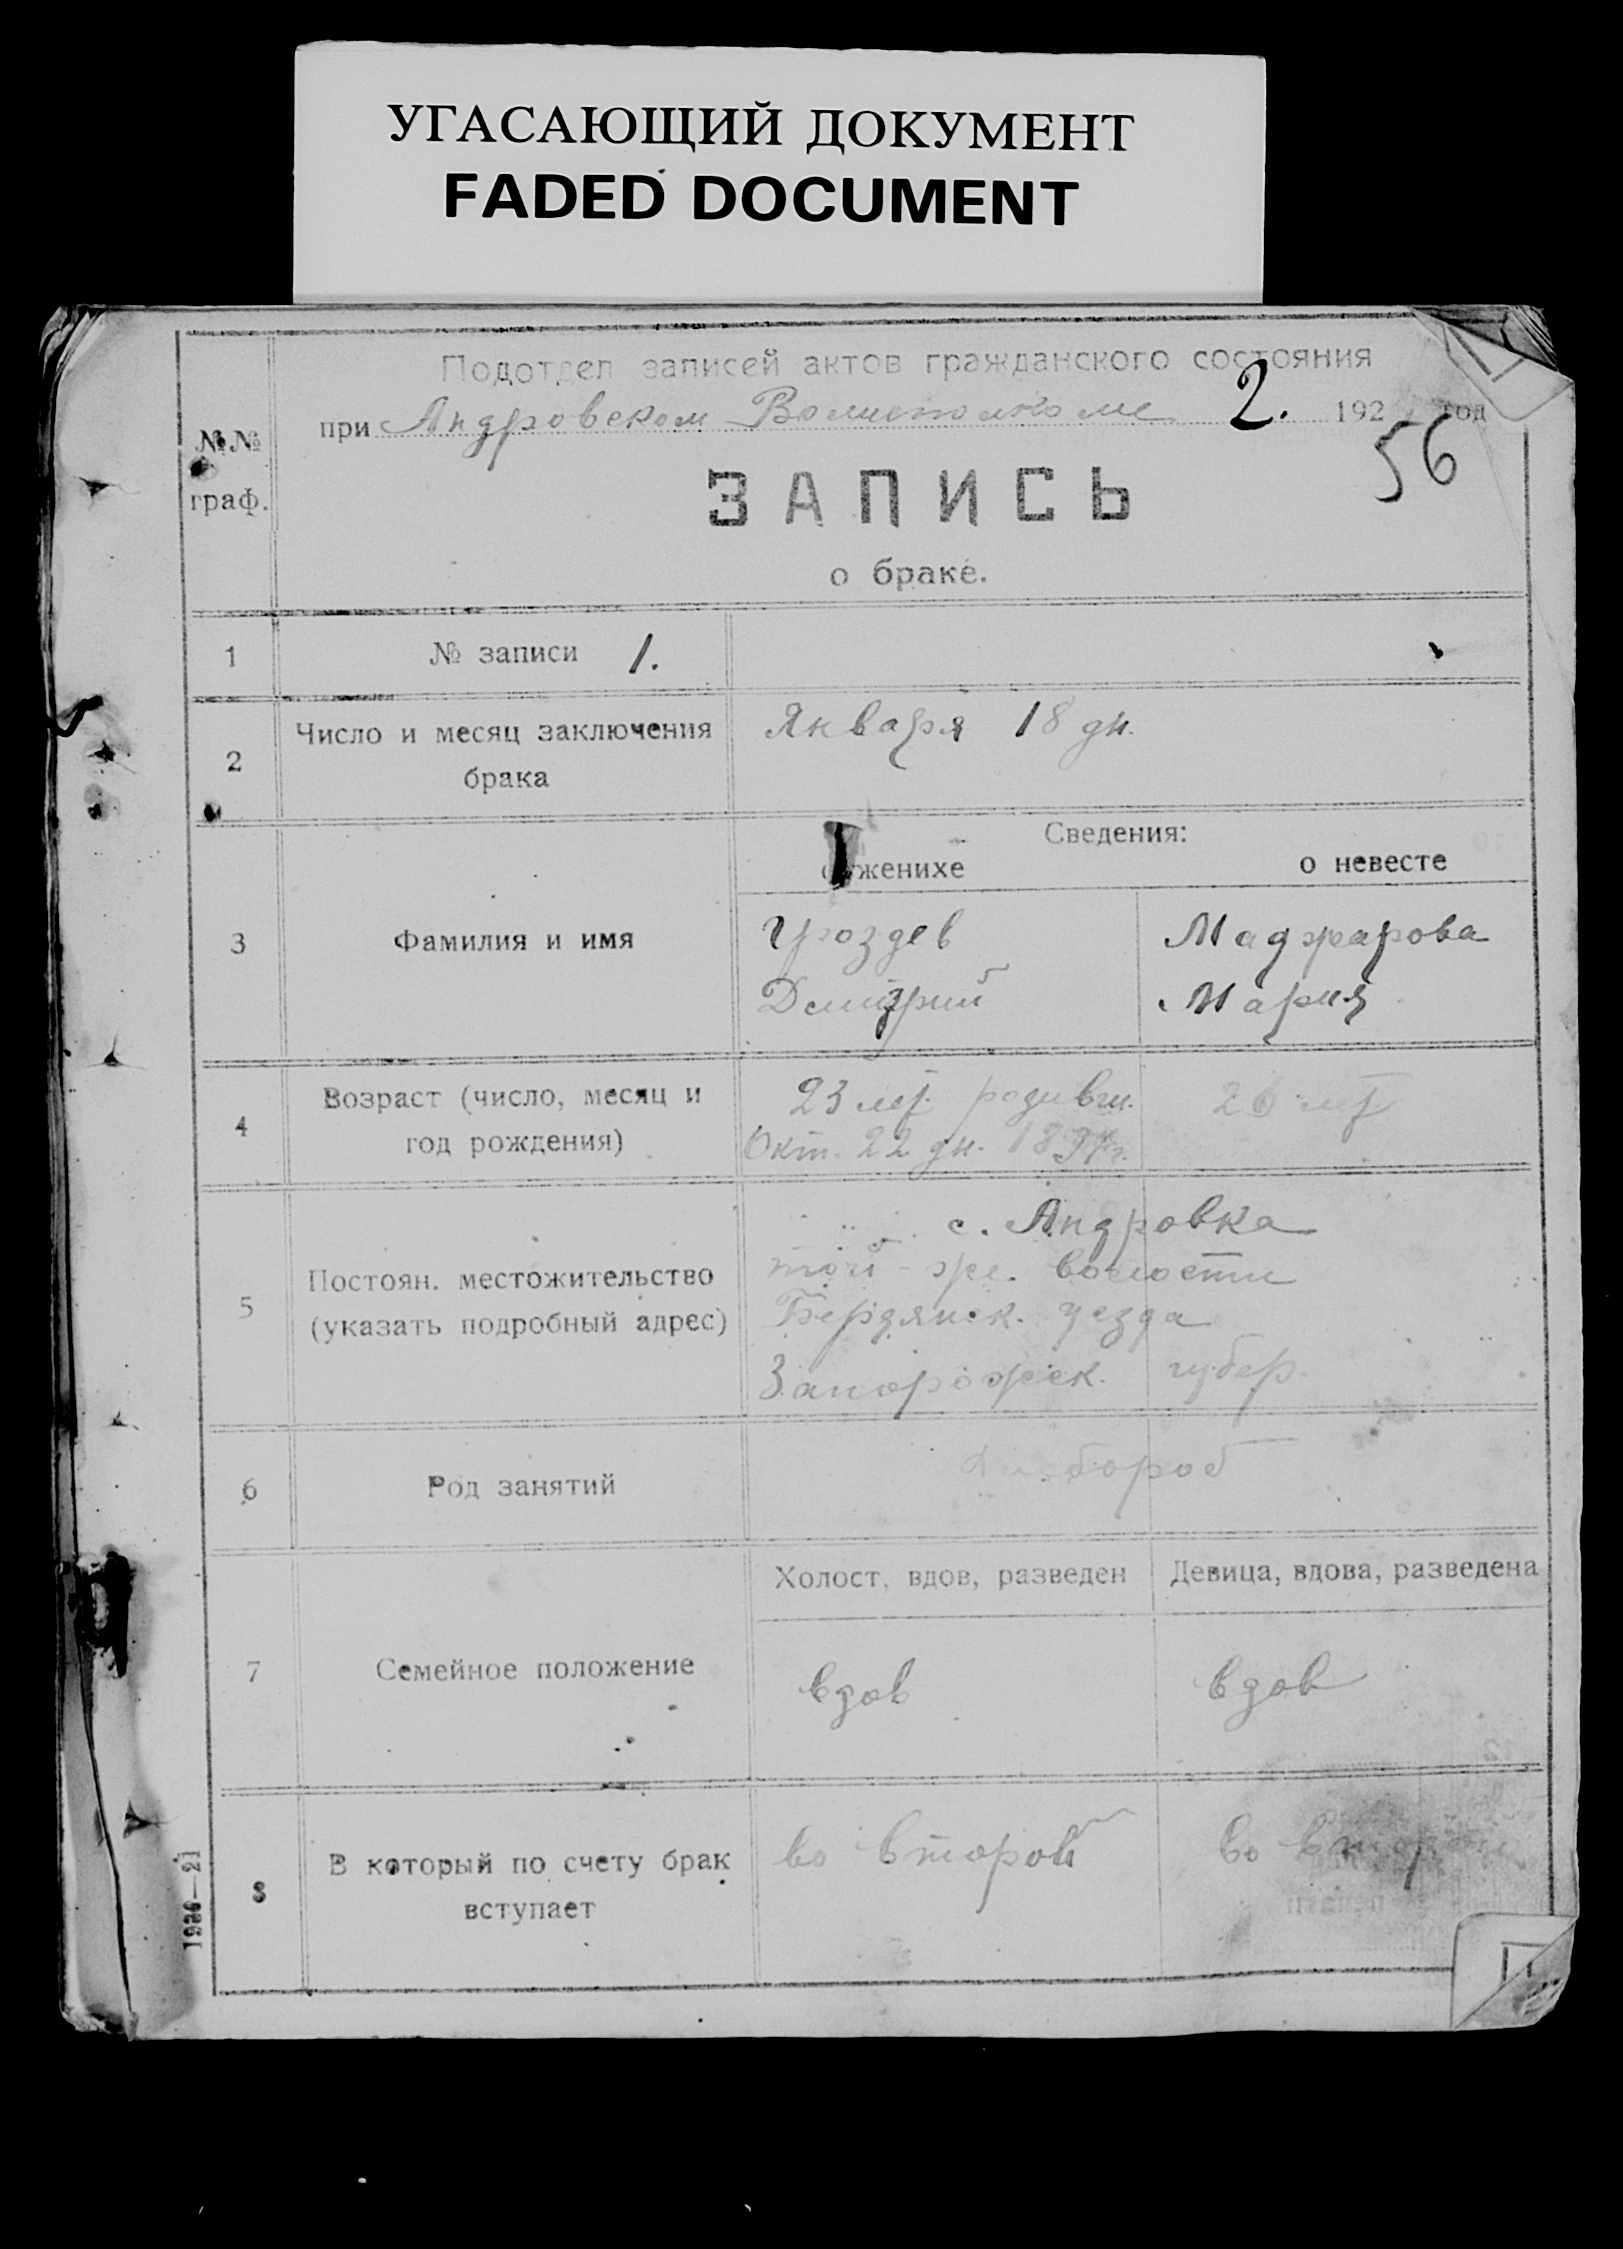 УГАСАЮЩИЙ ДОКУМЕНТ
FADED DOCUMENT
Подотдел записей актов гражданского состояния
при Андровском Волисполкоме 2. 192 год
56
№№
граф.
ЗАПИСЬ
о браке.
1 № записи 1.
2 Число и месяц заключения
брака
Января 18 дн.
Сведения:
о женихе о невесте
3 Фамилия и имя
Гроздев Маджарова
Дмитрий Мария
4 Возраст (число, месяц и
год рождения)
23 лет родивш. 26 лет
Окт. 22 дн. 1897г.
5 Постоян. местожительство
(указать подробный адрес)
с. Андровка
той-же волости
Бердянск. уезда
Запорожск. губер.
6 Род занятий
Хлебороб
7 Семейное положение
Холост, вдов, разведен Девица, вдова, разведена
вдов вдов
8 В который по счету брак
вступает
во второй во второй
1986—21